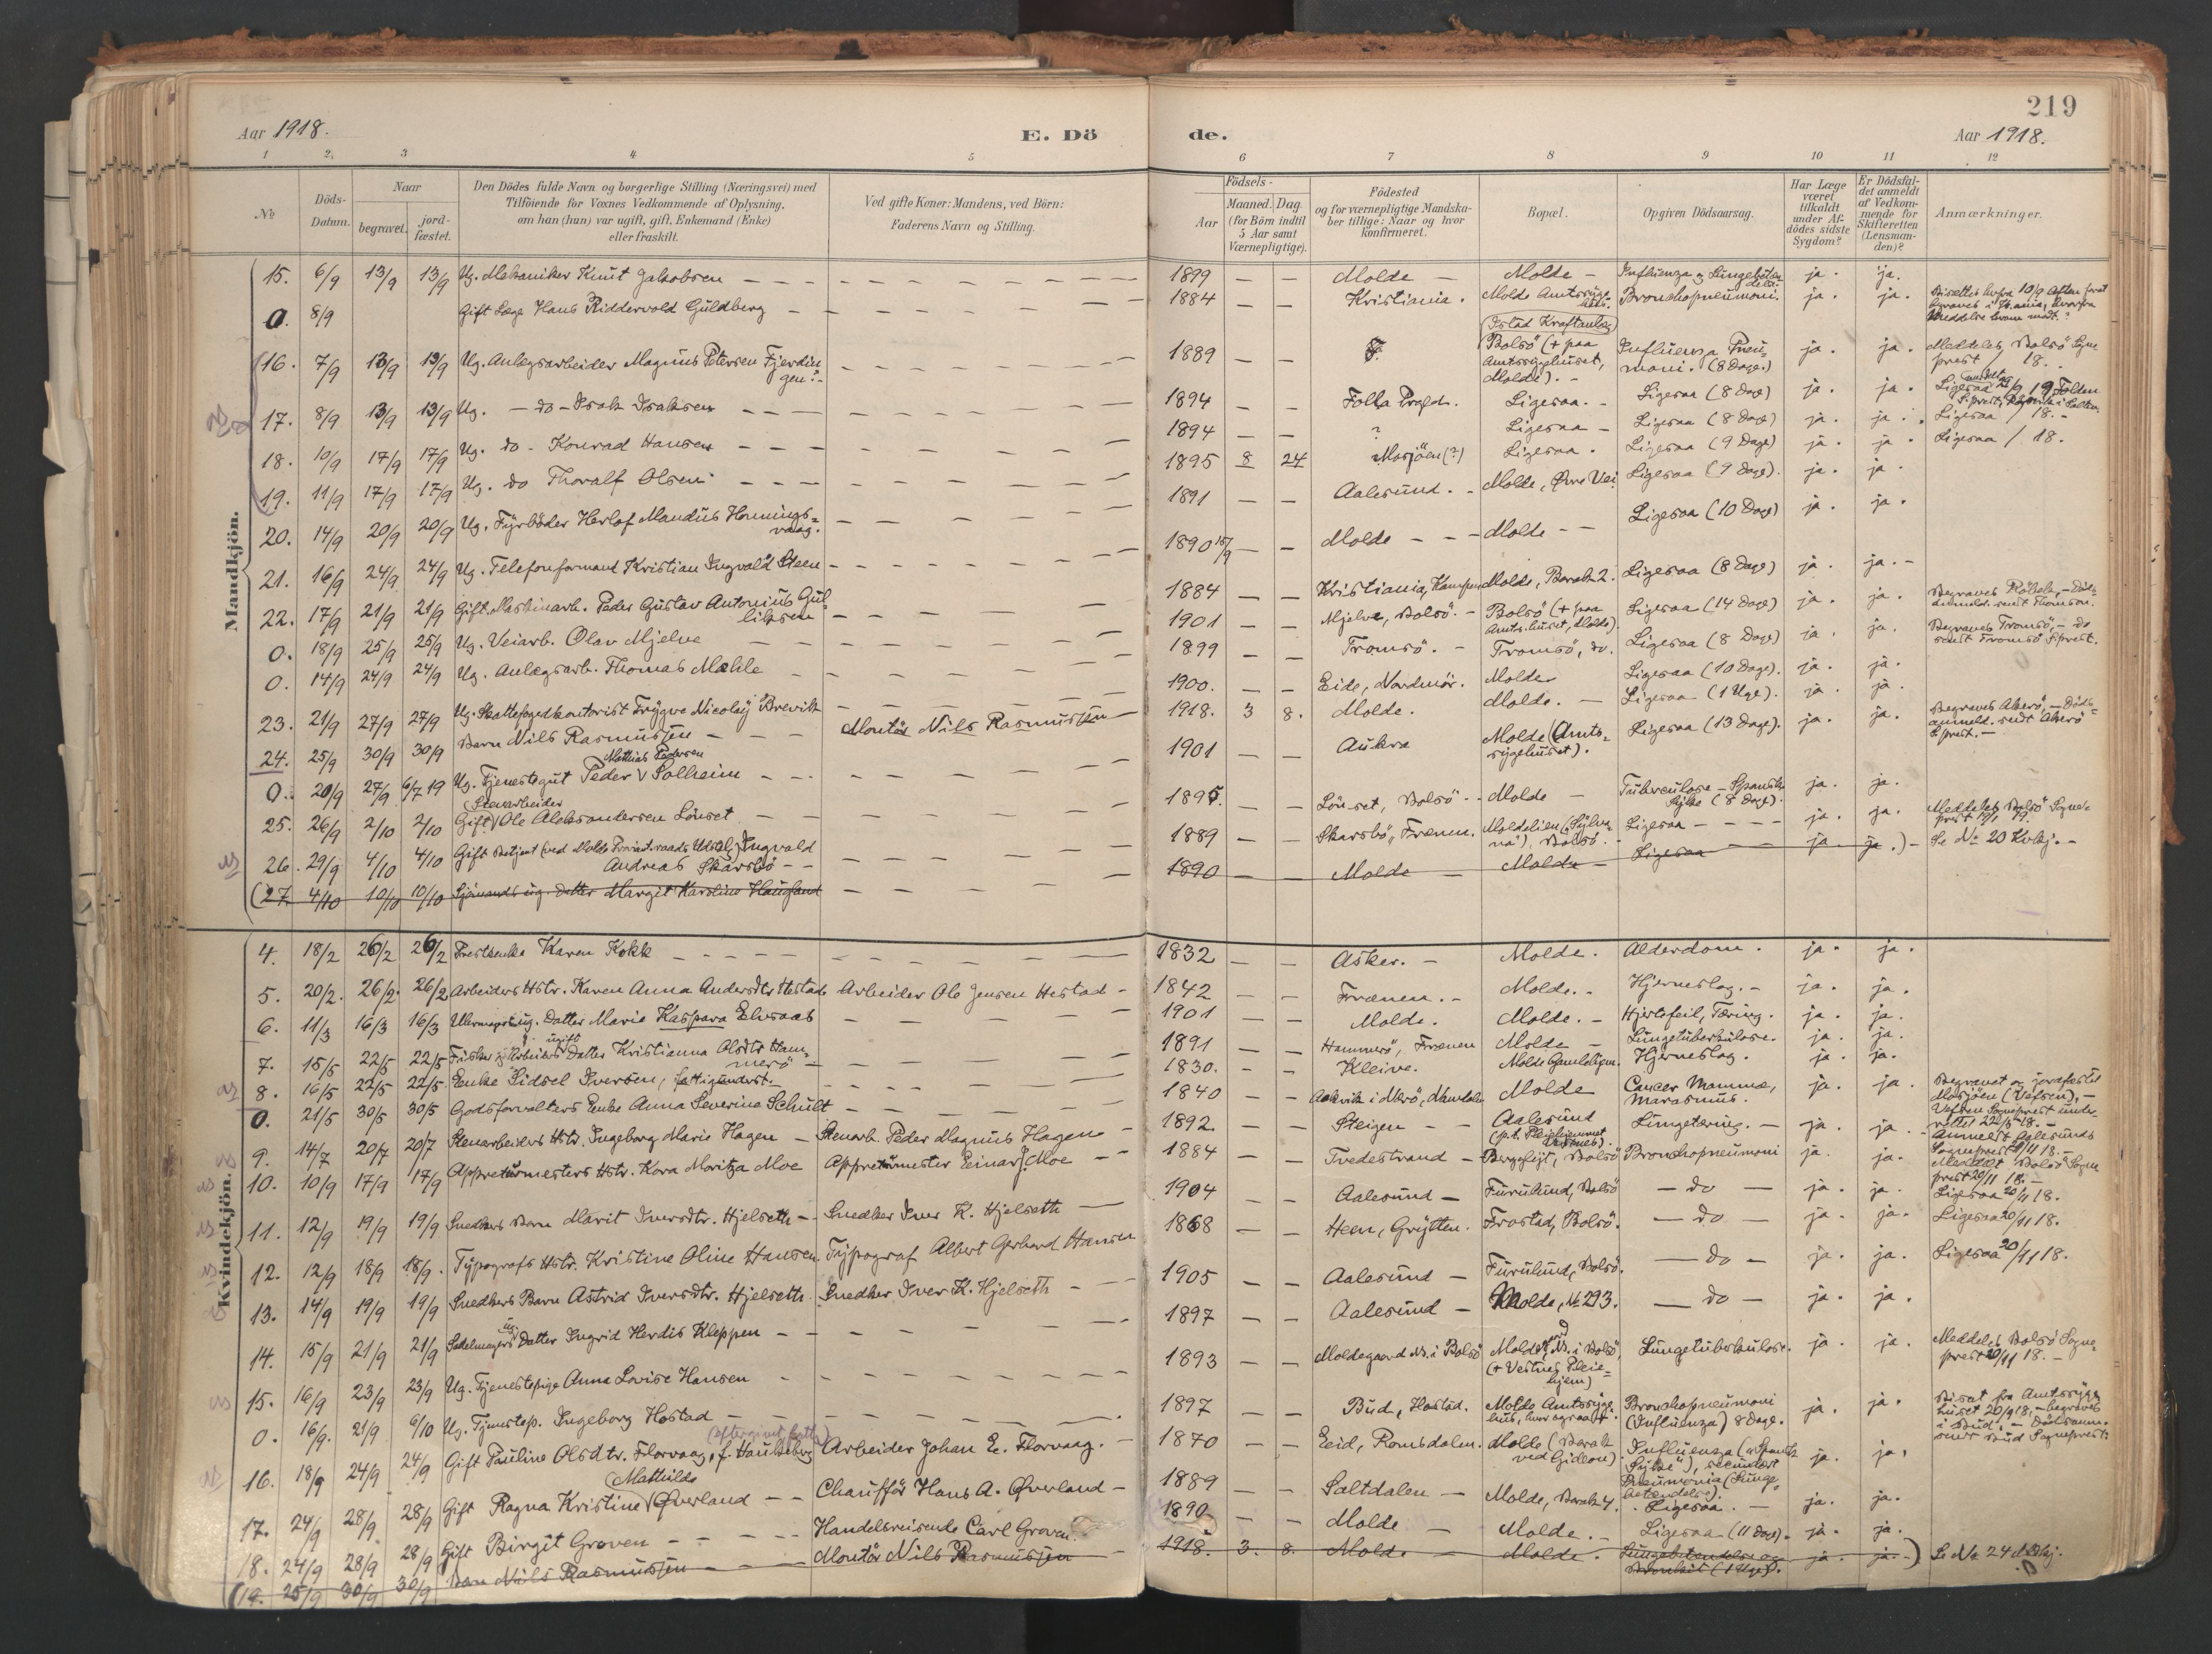 219
Aar 1918.
E. Dö
de.
Aar 1918.
1 2. 3 4 5 6 7 8 9 10 11 12
No
Döds-
Datum.
Naar
begravet.
jord-
fæstet.
Den Dödes fulde Navn og borgerlige Stilling (Næringsvei) med
Tilföiende for Voxnes Vedkommende af Oplysning,
om han (hun) var ugift, gift, Enkemand (Enke)
eller fraskilt.
Ved gifte Koner: Mandens, ved Börn:
Faderens Navn og Stilling.
Födsels-
Aar
Maaned. Dag.
(for Börn indtil
5 Aar samt
Værnepligtige).
Födested
og for værnepligtige Mandska-
ber tillige: Naar og hvor
konfirmeret.
Bopæl.
Opgiven Dödsaarsag.
Har Læge
været
tilkaldt
under Af-
dödes sidste
Sygdom?
Er Dödsfal-
det anmeldt
af Vedkom-
mende for
Skifteretten
(Lensman-
den)?
Anmærkninger.
Mandkjön.
15. 6/9 13/9 13/9 Ug. Mekaniker Knut Jakobsen 1899 Molde Molde Influenza og Lungebetæn- ja. ja.
0. 8/9 Gift Læge Hans Riddervold Guldberg 1884 Kristiania. Molde Amtssyge- Bronchopneumoni. ja. ja.
16. 7/9 13/9 13/9 Ug. Anlægsarbeider Magnus Petersen Fjerdin-
gen? 1889 ? (Istad Kraftanlæg)
Bolsö (+ paa
Amtssygehuset,
Molde). Influenza Pneu-
moni. (8 Dage) ja. ja. Meddeles Bolsö Sogne-
prest / 18.
17. 8/9 13/9 13/9 Ug. do Isak Isaksen 1894 Folla Prgld. Ligesaa. Ligesaa (8 Dage) ja. ja. Ligesaa
18. 10/9 17/9 17/9 Ug. do Konrad Hansen 1894 ? Ligesaa Ligesaa (8 Dage) ja. ja. Ligesaa / 18.
19. 11/9 17/9 17/9 Ug. do Thoralf Olsen 1895 8 24 Mosjöen (?) Ligesaa. Ligesaa (9 Dage) ja. ja. Ligesaa / 18.
20. 14/9 20/9 20/9 Ug. Fyrböder Herlof Mandus Honnings-
vaag. 1891 Aalesund. Molde, Øvre Vei Ligesaa (9 Dage). ja. ja.
21. 16/9 24/9 24/9 Ug. Telefonformand Kristian Ingvald Steen 1890 15/9 Molde Molde Ligesaa (10 Dage) ja. ja.
22. 17/9 21/9 21/9 Gift Maskinarb. Peder Gustav Antonius Gul-
liksen 1884 Kristiania, Kampen Molde, Barak 2. Ligesaa (8 Dage) ja. ja.
0. 18/9 25/9 25/9 Ug. Veiarb. Olav Mjelve 1901 Mjelve, Bolsö. Bolsö (+ paa
Amts.huset, Molde). Ligesaa (14 Dage) ja. ja. Begraves Röbek, Döds-
0. 14/9 24/9 24/9 Ug. Anlægsarb. Thomas Mæhle 1899 Tromsö. Tromsö, do. Ligesaa (8 Dage) ja. ja. Begraves Tromsö, do
sendt Tromsö S.prest.
23. 21/9 27/9 27/9 Ug. Skattefogedkontorist Trygve Nicolay Brevik 1900. Eide, Nordmör. Molde Ligesaa (10 Dage). ja. ja.
24. 25/9 30/9 30/9 Barn Nils Rasmussen Montör Nils Rasmussen 1918. 3 8. Molde. Molde. Ligesaa (1 Uge). ja. ja.
0. 20/9 27/9 6/7 19 Ug. Tjenestegut Peder Mathias Pedersen Solheim 1901 Aukra Molde (Amts-
sygehuset). Ligesaa (13 Dage). ja. ja. Begraves Akerö, Döds-
anmeld. sendt Akerö
S.prest.
25. 26/9 2/10 2/10 Stenarbeider
Gift Ole Aleksandersen Lönset 1895. Lönset, Bolsö. Molde Tuberculose Spanske
Syke (8 Dage). ja. ja.
26. 29/9 4/10 4/10 Gift Betjent (ved Molde Provianteraads Udsalg) Ingvald
Andreas Skarsbö 1889 Skarsbö, Frænen. Moldelien (Sylva-
na) Bolsö. Ligesaa ja. ja. Meddeles Bolsö Sogne-
prest
(27. 4/10 10/10 10/10 Sjömands ug. Datter Margit Karoline Haugland 1890 Molde Molde Ligesaa ja ja.) Se No 20 Kvkj.
Kvindekjön.
4. 18/2 26/2 26/2 Presteenke Karen Kokk 1832 Asker. Molde. Alderdom. ja. ja.
5. 20/2. 26/2. 26/2 Arbeiders Hstr. Karen Anna Andersdtr Hestad Arbeider Ole Jensen Hestad 1842 Frænen. Molde. Hjerneslag. ja. ja.
6. 11/3 16/3 16/3 Uhrmagers ug. Datter Marie Kaspara Elvsaas 1901 Molde. Molde. Hjertefeil, Tæring. ja. ja.
7. 15/5 22/5 22/5 Fisker og Arbeiders ugift Datter Kristianna Olsdtr Ham-
merö 1891 Hammerö, Frænen Molde Lungetuberkulose. ja. ja.
8. 16/5 22/5 22/5 Enke Sidsel Iversen, fattigunderst. 1830. Kleive. Molde Gamlehjem. Hjerneslag. ja. ja.
0. 21/5 30/5 30/5 Godsforvalters Enke Anna Severine Schult 1840 Molde Cancer Mammæ,
Marasmus. ja. ja. Begravet og jordfæstet
Mosjöen (Vefsen).
9. 14/7 20/7 20/7 Stenarbeiders Hstr. Ingeborg Marie Hagen Stenarb. Peder Magnus Hagen 1892. Steigen Aalesund
(p.t. Pleiehjemmet
Vestnes). Lungetæring. ja. ja. Anmeldt Aalesunds
10. 10/9 17/9 17/9 Appreturmesters Hstr. Kora Moritza Moe Appreturmester Einar J. Moe 1884 Tvedestrand Bolsö Bronchopneumoni ja. ja. Meddelt Bolsö Sogne-
prest 20/11 18.
11. 12/9 19/9 19/9 Snedkers Barn Marit Iversdtr. Hjelseth Snedker Iver K. Hjelseth 1904 Aalesund Furulund, Bolsö do ja. ja. Ligesaa 20/11 18.
12. 12/9 18/9 18/9. Typografs Hstr. Kristine Oline Hansen. Typograf Albert Gerhard Hansen 1868 Heen, Grytten. Frostad, Bolsö. do ja. ja. Ligesaa 20/11 18.
13. 14/9 19/9 19/9 Snedkers Barn Astrid Iversdtr. Hjelseth Snedker Iver K. Hjelseth 1905 Aalesund Furulund, Bolsö. do ja. ja. Ligesaa 20/11 18.
14. 15/9 21/9 21/9 Sadelmagers ug. Datter Ingrid Herdis Kleppen 1897 Aalesund Molde, No 293. do ja. ja.
15. 16/9 23/9 23/9 Ug. Tjenestepige Anna Lovise Hansen 1893 Moldegaard Ns. i Bolsö Moldegaard Ns. i Bolsö,
(+ Vestnes Pleie-
hjem) Lungetuberkulose. ja. ja. Meddeles Bolsö Sogne-
prest 20/11 18.
0. 16/9. 21/9 6/10 Ug. Tjenestep. Ingeborg Hostad 1897 Bud, Hostad. Molde Amtssyge-
hus, Bronchopneumoni
(Influenza) 8 Dage. ja. ja. Bisat fra Amtssyge-
huset 20/9 18, begraves
i Bud.
16. 18/9 24/9 24/9 Gift Pauline Olsdtr. Florvaag, f. Haukeberg Arbeider Johan E. Florvaag. 1870 Eid, Romsdalen. Molde (Barak
ved Gideon). Influenza ("Spansk
Syke"), secundært
Pneumonia (Lunge-
betændelse). ja. ja.
17. 24/9 28/9. 28/9 Gift Ragna Kristine Mathilde Øverland Chauffför Hans A. Øverland 1889 Saltdalen Molde, Barak 4. Ligesaa. ja. ja.
18. 24/9 28/9 28/9 Gift Birgit Groven Handelsreisende Carl Groven 1890 Molde Molde. Ligesaa (11 Dage). ja. ja.
(19. 25/9 30/9 30/9 Barn Nils Rasmussen Montör Nils Rasmussen 1918. 3. 8. Molde Molde. Lungebetændelse og
Bronkit (1 Uge). ja. ja.) Se No 24 Mdkj.